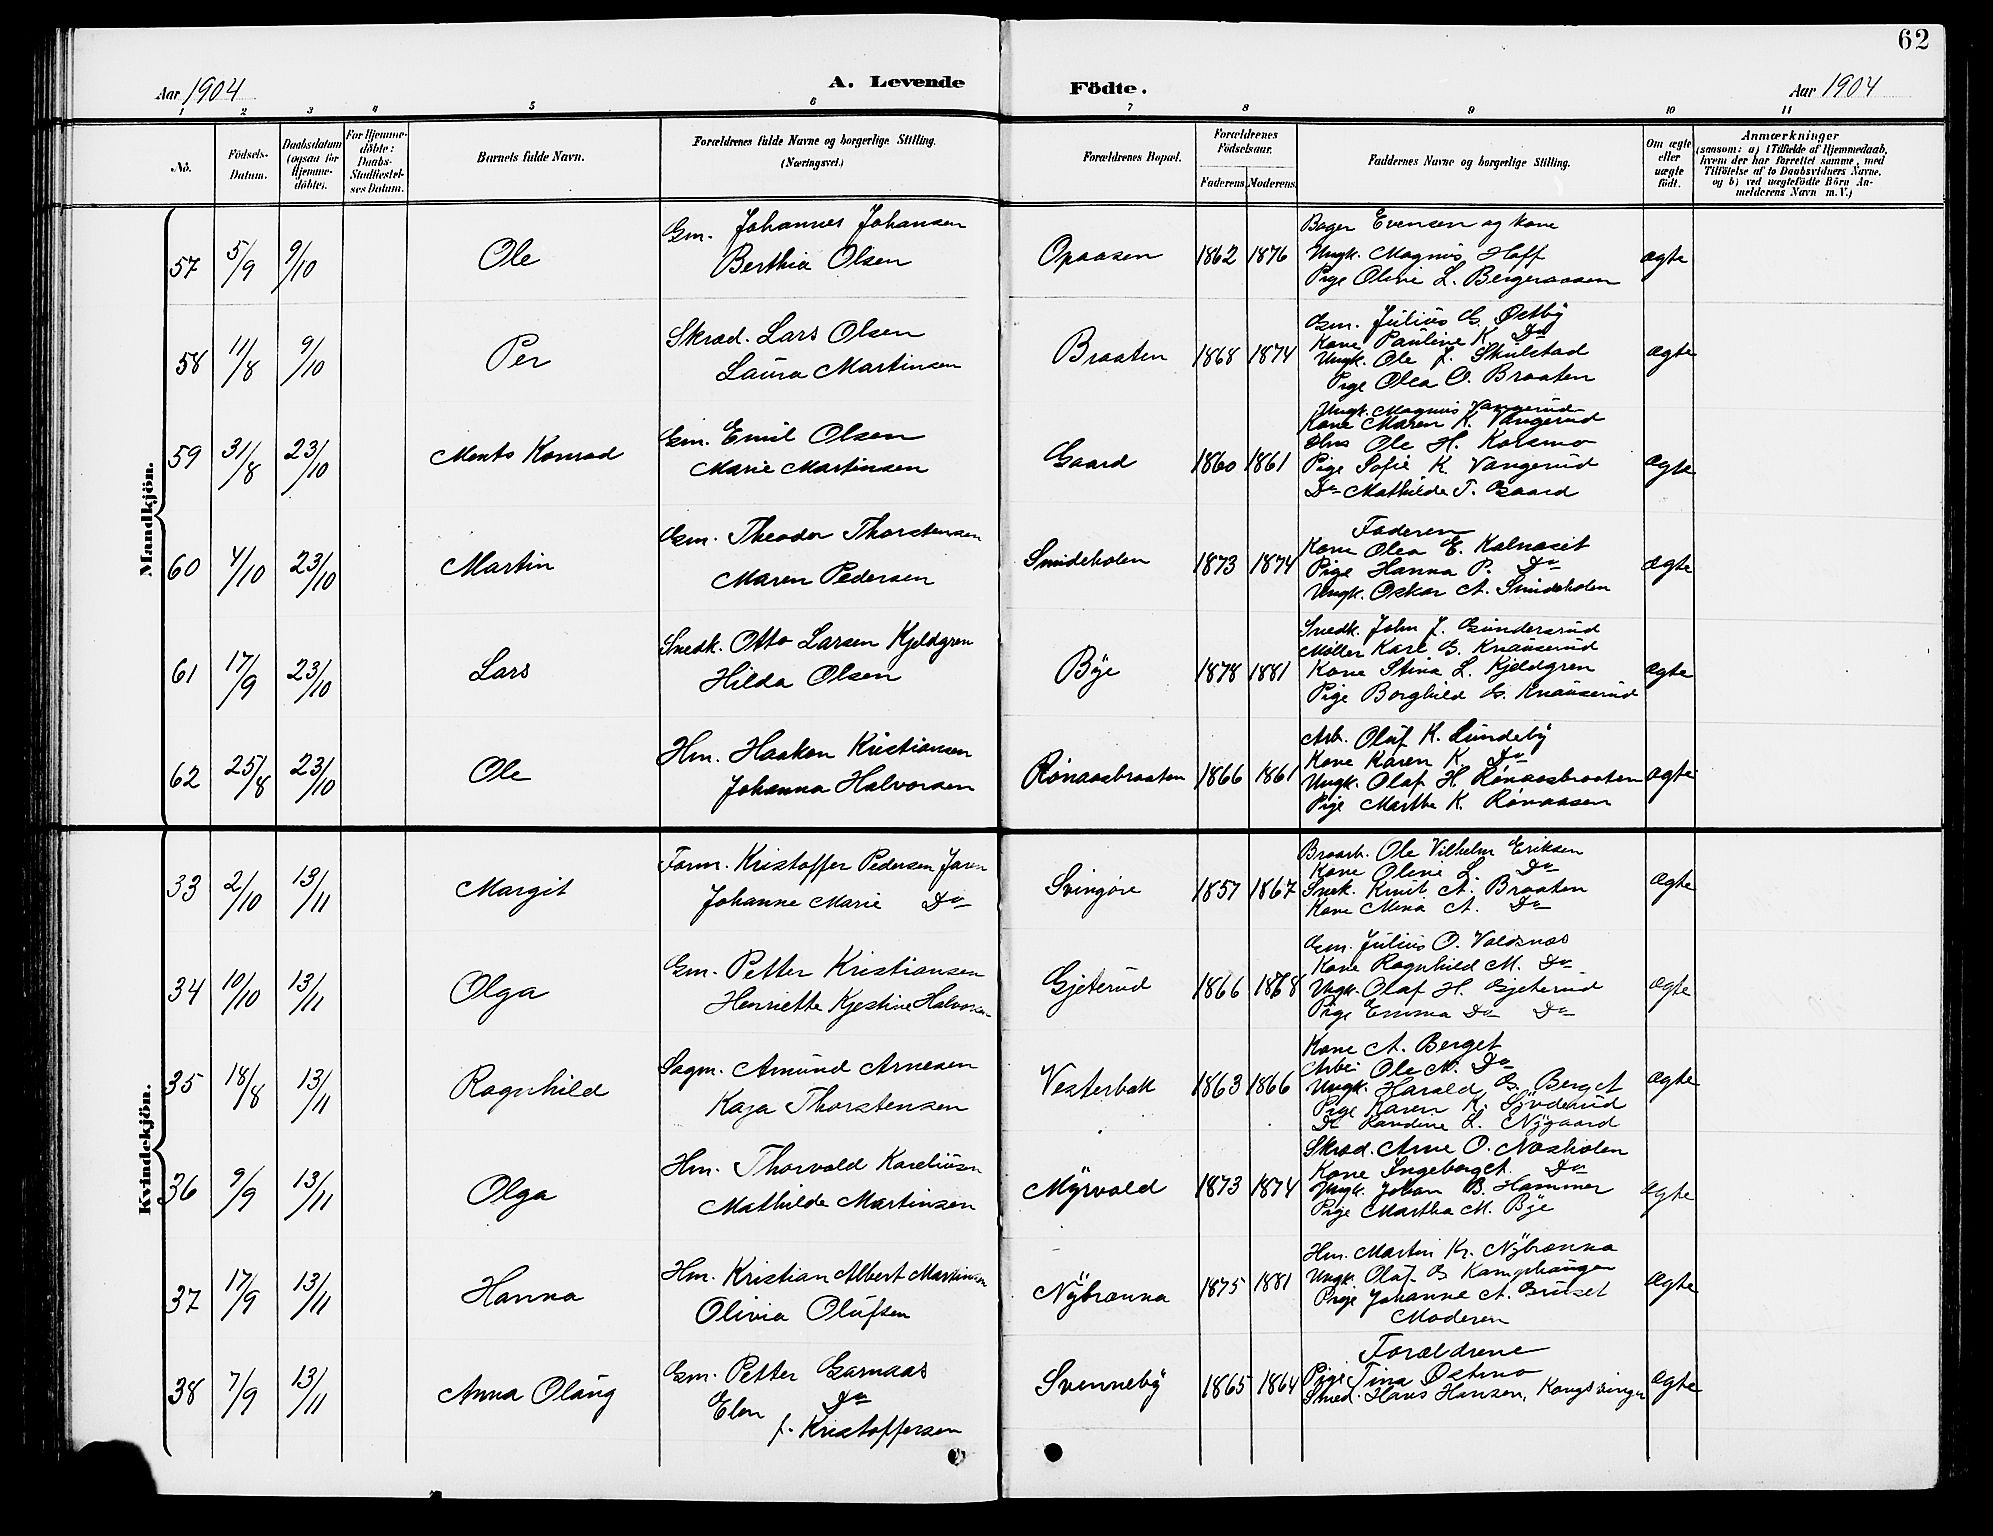 62
Aar 1904
A. Levende
Födte.
Aar 1904
1 2 3 4 5 6 7 8 9 10 11
No.
Födsels-Datum.
Daabsdatum (ogsaa for Hjemme-döbte).
For Hjemme-döbte: Daabs-Stadfæstel-ses Datum.
Barnets fulde Navn.
Forældrenes fulde Navne og borgerlige Stilling. (Næringsvei.)
Forældrenes Bopæl.
Forældrenes Födselsaar.
Faderens. Moderens.
Faddernes Navne og borgerlige Stilling.
Om ægte eller uægte födt.
Anmærkninger
(saasom: a) i Tilfælde af Hjemmedaab, hvem der har forrettet samme, med Tilföielse af to Daabsvidners Navne, og b) ved uægtefödte Börn An-melderens Navn m. V.)
Mandkjön.
57 5/9 9/10 Ole
Gm. Johannes Johansen
Berthia Olsen
Opaasen 1862 1876
Bager Evensen og Kone
Ungk. Magnus Hoff
Pige Oline L. Bergeraasen
ægte
58 11/8 9/10 Per
Skræd. Lars Olsen
Laura Martinsen
Braaten 1868 1874
Gm. Julius G. Østby
Kone Pauline K. Do
Ungk. Ole J. Skulstad
Pige Olea O. Braaten
ægte
59 31/8 23/10 Ments Konrad
Gm. Emil Olsen
Marie Martinsen
Gaard 1860 1861
Ungk. Magnus Vangerud
Kone Maren K. Vangerud
Ole H. Korsmo
Pige Sofie K. Vangerud
Do Mathilde T. Gaard
ægte
60 4/10 23/10 Martin
Gm. Theodor Thorstensen
Maren Pedersen
Smideholen 1873 1874
Faderen
Kone Olea E. Kalnæset
Pige Hanna P. Do
Ungk. Oskar A. Smideholen
ægte
61 17/9 23/10 Lars
Snedk. Otto Larsen Kjeldgren
Hilda Olsen
Bÿe 1878 1881
Snedk. John J. Gundersrud
Møller Karl G. Knauserud
Kone Stina L. Kjeldgren
Pige Borghild G. Knauserud
ægte
62 25/8 23/10 Ole
Hm. Haakon Kristiansen
Johanna Halvorsen
Rønaasbraaten 1866 1861
Arb. Oluf K. Lundeby
Kone Karen K. Do
Ungk. Olaf H. Rønaasbraaten
Pige Marthe K. Rønaasen
ægte
Kvindekjön.
33 2/10 13/11 Margit
Form. Kristoffer Pedersen Jaren
Johanne Marie Do
Svingøre 1857 1867
Ole Vilhelm Eriksen
Kone Oline L. Do
Snek. Knut A. Braaten
Kone Mina A. Do
ægte
34 10/10 13/11 Olga
Gm. Petter Kristiansen
Henriette Kjestine Halvorsen
Gjeterud 1866 1868
Gm. Julius O. Valdsnæs
Kone Ragnhild M. Do
Ungk. Olaf H. Gjeterud
Pige Emma Do Do
ægte
35 18/8 13/11 Ragnhild
Sagm. Amund Arnesen
Kaja Thorstensen
Vesterbæk 1863 1866
Kone A. Berget
Arbei Ole N. Do
Ungk. Harald G. Berget
Pige Karen K.
Do Randine L. Nÿgaard
ægte
36 9/9 13/11 Olga
Hm. Thorvald Kareliusen
Mathilde Martinsen
Mÿrvold 1873 1874
Skræd. Arne O. Næsholen
Kone Ingeborg A. Do
Ungk. Johan B. Hammer
Pige Martha M. Bÿe
ægte
37 17/9 13/11 Hanna
Hm. Kristian Albert Martinsen
Olivia Olufsen
Nÿbrænna 1875 1881
Hm. Martin Kr. Nÿbrænna
Ungk. Olaf G Kamphaugen
Pige Johanne A. Bruset
Moderen
ægte
38 7/9 13/11 Anna Olaug
Gm. Petter Garnaas
Elen Do
f. Kristoffersen
Svennebÿ 1865 1864
Forældrene
Pige Tina Østmo
Smed. Hans Hansen, Kongsvinger
ægte